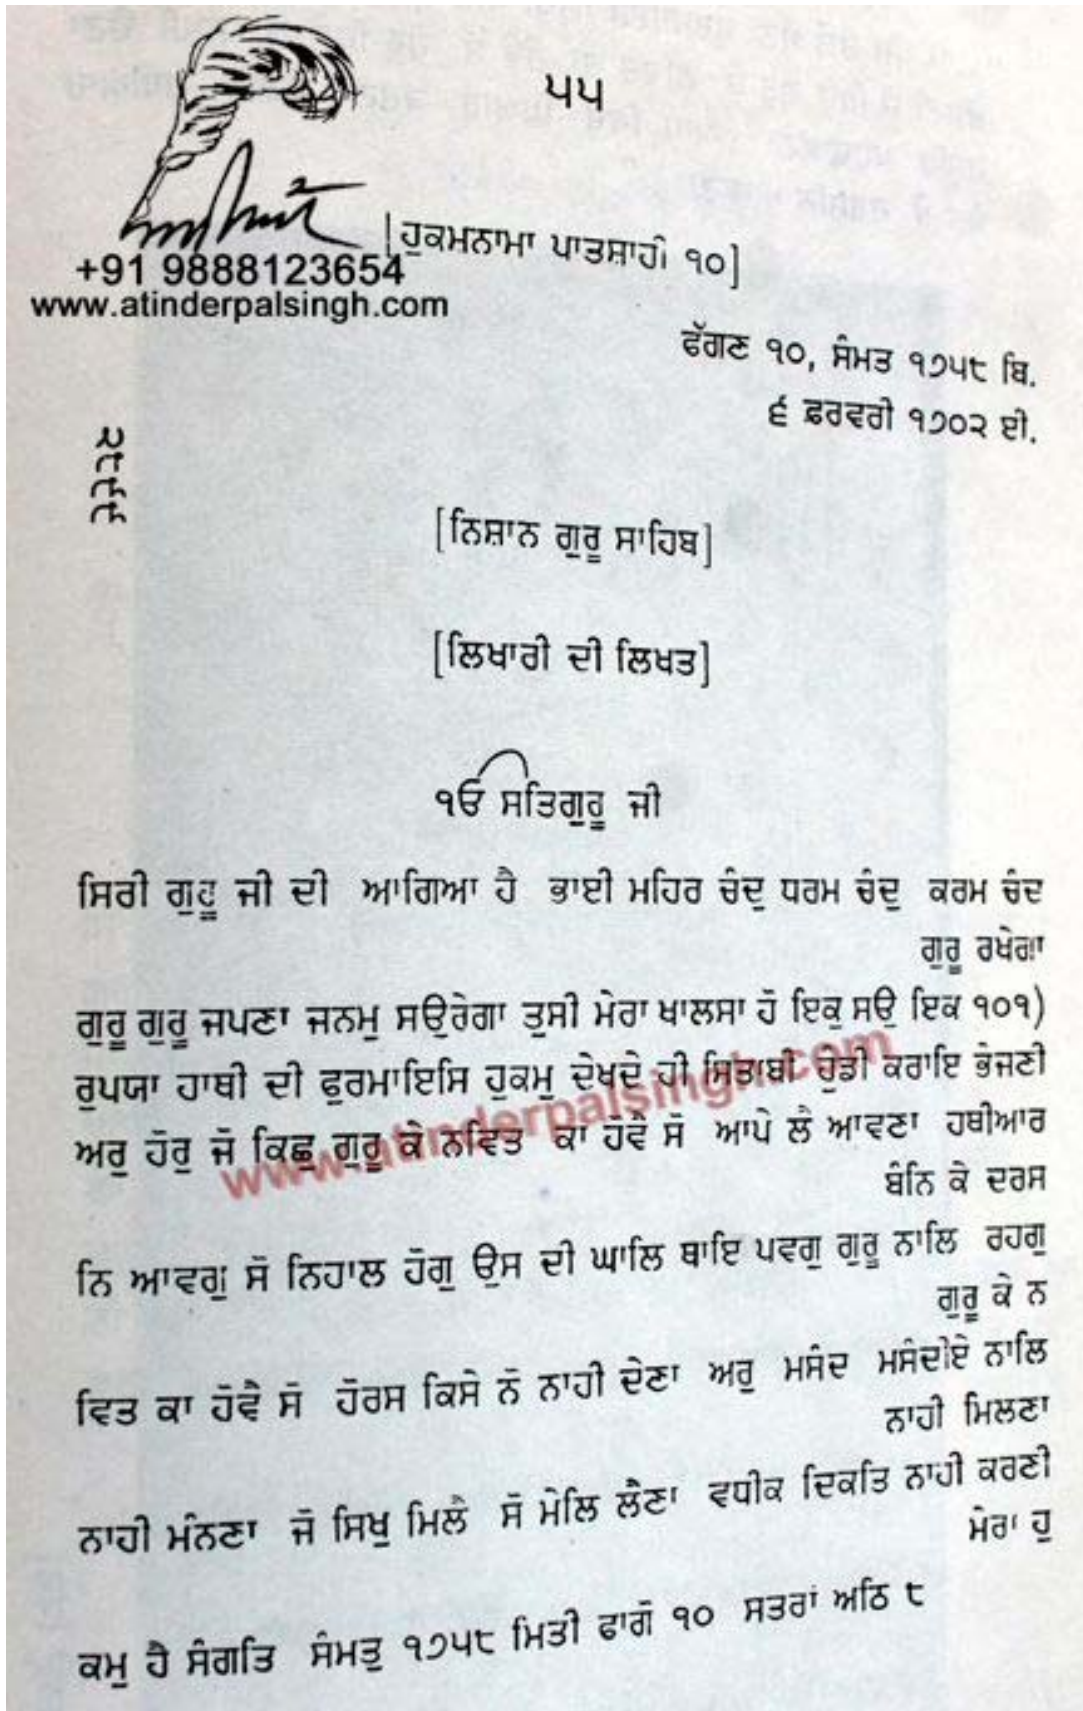 ੫੫
[ਹੁਕਮਨਾਮਾ ਪਾਤਸ਼ਾਹੀ ੧੦]
+91 9888123654
www.atinderpalsingh.com
ਫੱਗਣ ੧੦, ਸੰਮਤ ੧੭੫੮ ਬਿ.
੬ ਫ਼ਰਵਰੀ ੧੭੦੨ ਈ.
[ਨਿਸ਼ਾਨ ਗੁਰੂ ਸਾਹਿਬ]
[ਲਿਖਾਰੀ ਦੀ ਲਿਖਤ]
ੴ ਸਤਿਗੁਰੂ ਜੀ
ਸਿਰੀ ਗੁਰੂ ਜੀ ਦੀ ਆਗਿਆ ਹੈ ਭਾਈ ਮਹਿਰ ਚੰਦੁ ਧਰਮ ਚੰਦੁ ਕਰਮ ਚੰਦ
ਗੁਰੂ ਰਖੇਗਾ
ਗੁਰੂ ਗੁਰੂ ਜਪਣਾ ਜਨਮੁ ਸਉਰੇਗਾ ਤੁਸੀ ਮੇਰਾ ਖਾਲਸਾ ਹੋ ਇਕੁ ਸਉ ਇਕ ੧੦੧)
ਰੁਪਯਾ ਹਾਥੀ ਦੀ ਫੁਰਮਾਇਸਿ ਹੁਕਮੁ ਦੇਖਦੇ ਹੀ ਸਿਤਾਬੀ ਹੁੰਡੀ ਕਰਾਇ ਭੇਜਣੀ
ਅਰੁ ਹੋਰੁ ਜੋ ਕਿਛੁ ਗੁਰੂ ਕੇ ਨਵਿਤ ਕਾ ਹੋਵੈ ਸੋ ਆਪੇ ਲੈ ਆਵਣਾ ਹਥੀਆਰ
ਬੰਨਿ ਕੇ ਦਰਸ
ਨਿ ਆਵਗੁ ਸੋ ਨਿਹਾਲ ਹੋਗੁ ਉਸ ਦੀ ਘਾਲਿ ਥਾਇ ਪਵਗੁ ਗੁਰੂ ਨਾਲਿ ਰਹਗੁ
ਗੁਰੂ ਕੇ ਨ
ਵਿਤ ਕਾ ਹੋਵੈ ਸੋ ਹੋਰਸ ਕਿਸੇ ਨੋ ਨਾਹੀ ਦੇਣਾ ਅਰੁ ਮਸੰਦ ਮਸੰਦੀਏ ਨਾਲਿ
ਨਾਹੀ ਮਿਲਣਾ
ਨਾਹੀ ਮੰਨਣਾ ਜੋ ਸਿਖੁ ਮਿਲੈ ਸੋ ਮੇਲਿ ਲੈਣਾ ਵਧੀਕ ਦਿਕਤਿ ਨਾਹੀ ਕਰਣੀ
ਮੇਰਾ ਹੁ
ਕਮੁ ਹੈ ਸੰਗਤਿ ਸੰਮਤੁ ੧੭੫੮ ਮਿਤੀ ਫਾਗੋ ੧੦ ਸਤਰਾਂ ਅਠਿ ੮
www.atinderpalsingh.com